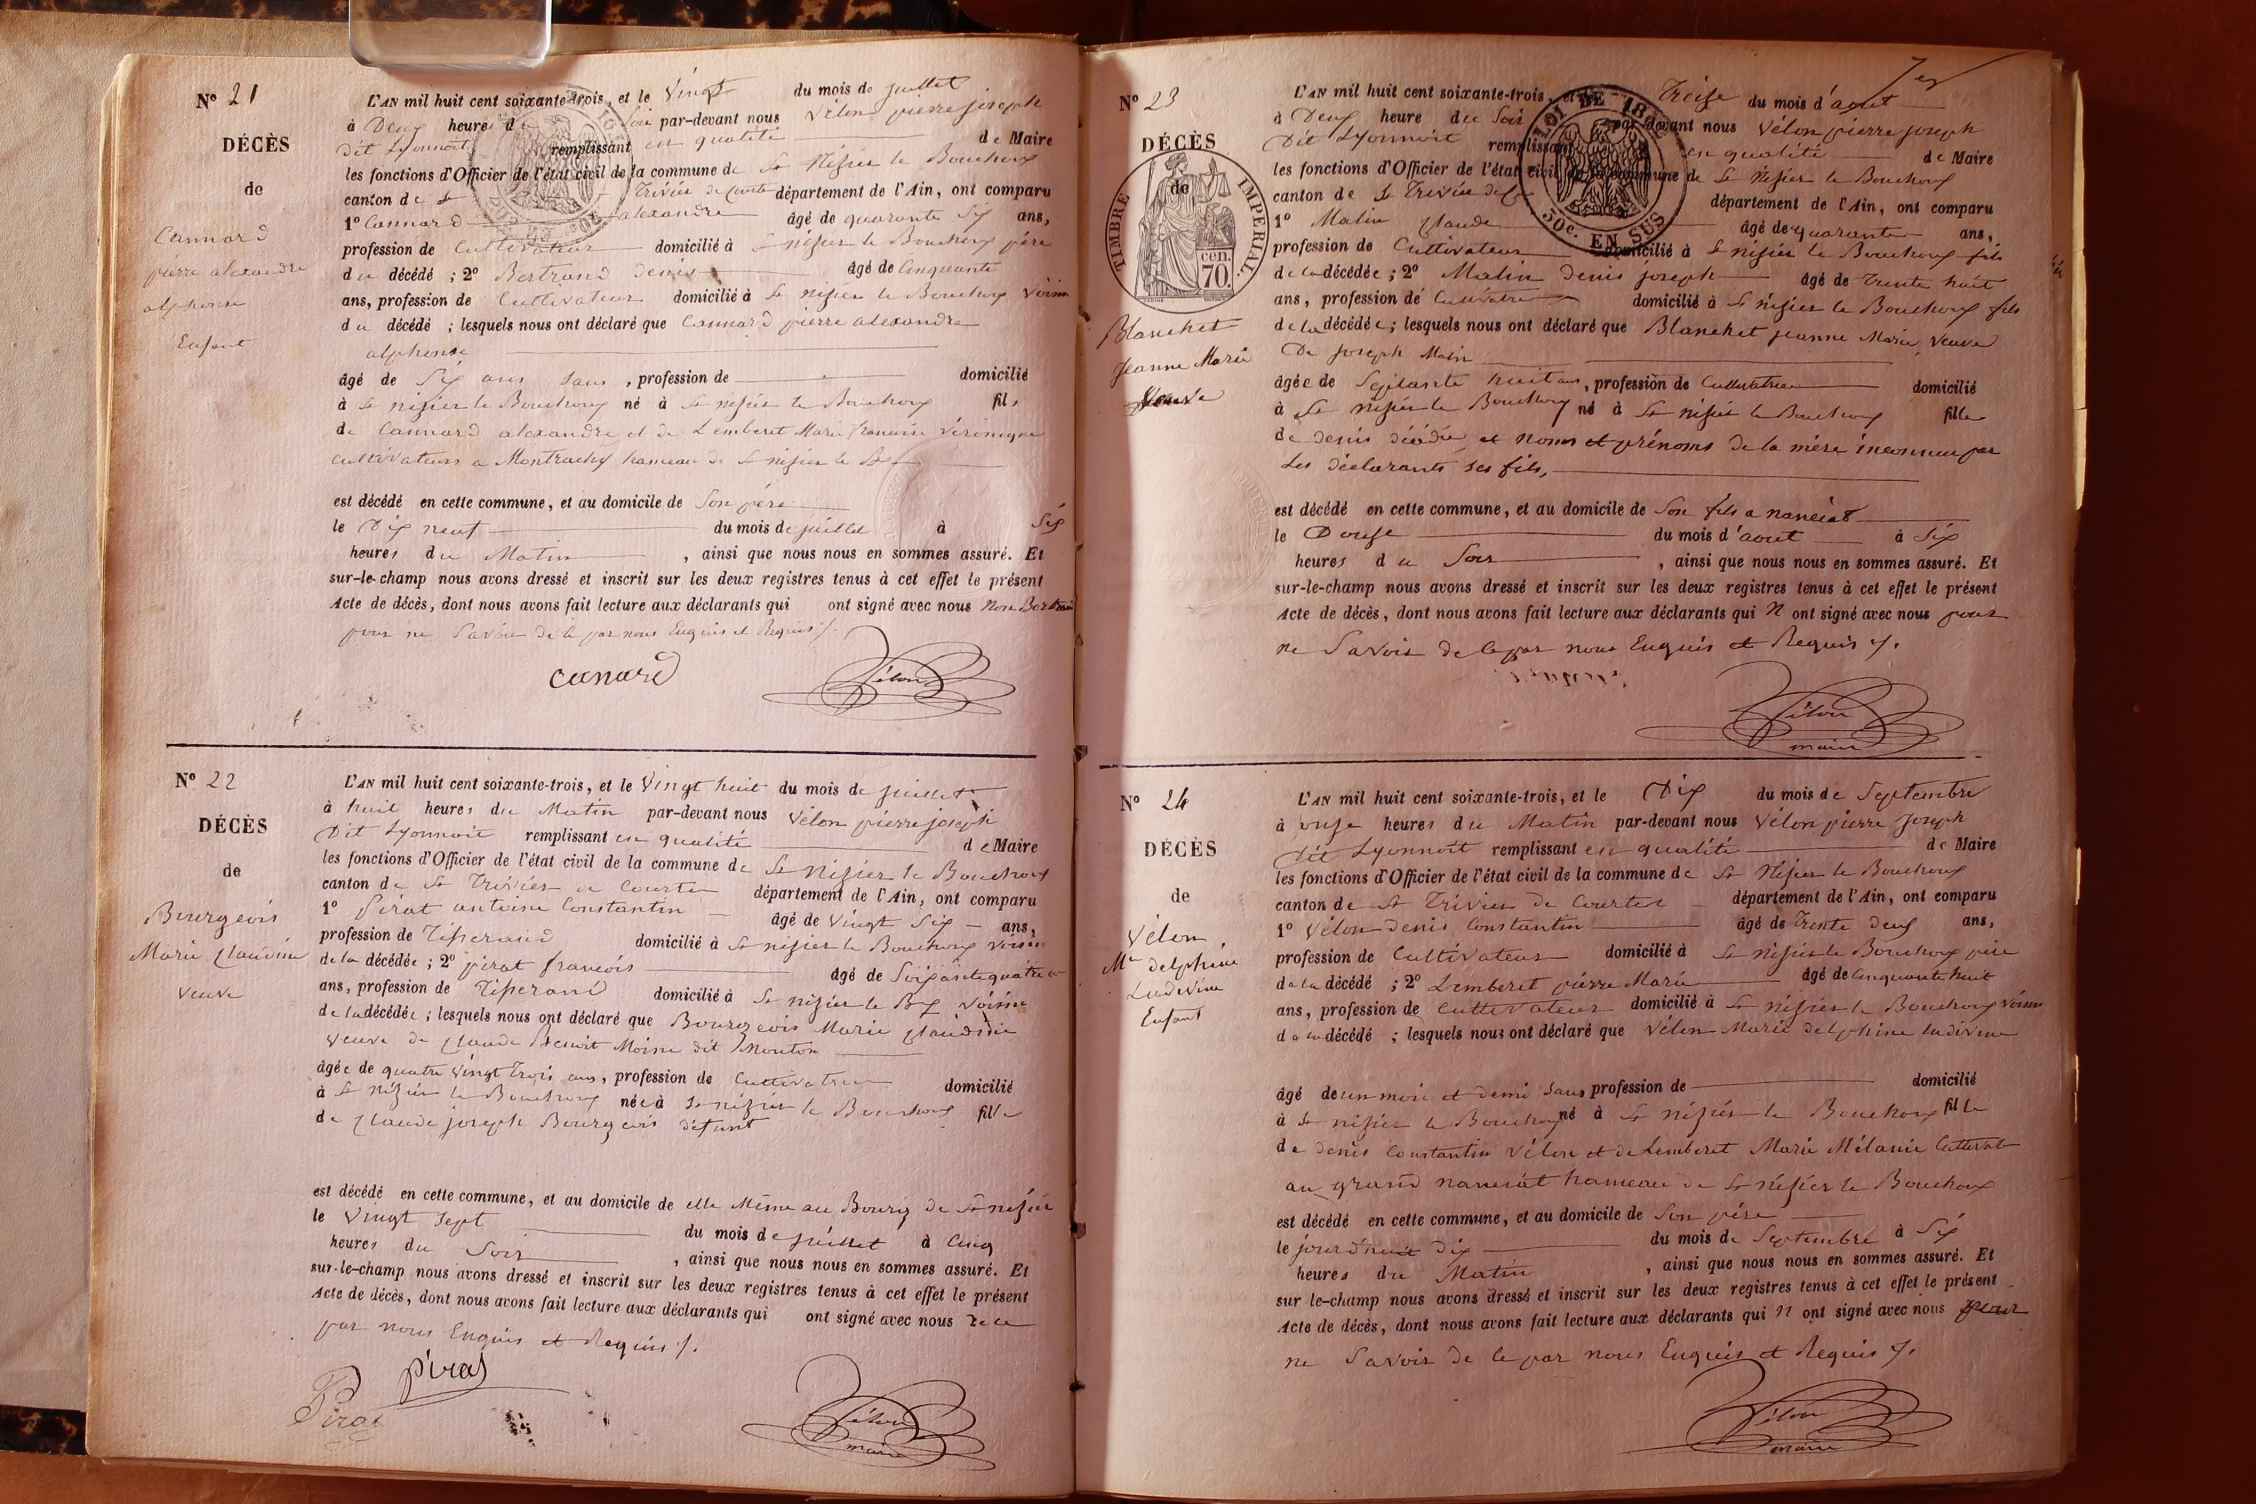 N° 21
DÉCÈS
de
Cannard
pierre alexandre
alphonse
Enfant
L'AN mil huit cent soixante-trois, et le Vingt du mois de juillet
à Deux heures du Soir par-devant nous Vélon pierre joseph
Dit Lyonnoit remplissant en qualité de Maire
les fonctions d'Officier de l'état civil de la commune de St Nisier le Bouchoux
canton de St Trivier de Courte département de l'Ain, ont comparu
1° Cannard alexandre âgé de quarante Six ans,
profession de Cultivateur domicilié à St nisier le Bouchoux père
du décédé ; 2° Bertrand Denis âgé de Cinquante
ans, profession de Cultivateur domicilié à St nisier le Bouchoux Voisin
du décédé ; lesquels nous ont déclaré que Cannard pierre alexandre
alphonse
âgé de Six ans Sans , profession de domicilié
à St nisier le Bouchoux né à St nisier le Bouchoux fils
de Cannard alexandre et de Lemberet Marie françoise Véronique
cultivateurs a Montrachy hameau de St nisier le Bx
est décédé en cette commune, et au domicile de Son père
le Dix neuf du mois de juillet à Six
heures du Matin , ainsi que nous nous en sommes assuré. Et
sur-le-champ nous avons dressé et inscrit sur les deux registres tenus à cet effet le présent
Acte de décès, dont nous avons fait lecture aux déclarants qui ont signé avec nous Non Bertrand
pour ne Savoir de ce par nous Enquis et Requis /.
canard Vélon
N° 22
DÉCÈS
de
Bourgeois
Marie Claudine
Veuve
L'AN mil huit cent soixante-trois, et le Vingt huit du mois de juillet
à huit heures du Matin par-devant nous Vélon pierre joseph
Dit Lyonnoit remplissant en qualité de Maire
les fonctions d'Officier de l'état civil de la commune de St Nisier le Bouchoux
canton de St Trivier de Courte département de l'Ain, ont comparu
1° Pirat antoine Constantin âgé de Vingt Six ans,
profession de Tisserand domicilié à St nisier le Bouchoux Voisin
de la décédée ; 2° pirat françois âgé de Soixante quatre
ans, profession de Tisserand domicilié à St nisier le Bx Voisin
de la décédée ; lesquels nous ont déclaré que Bourgeois Marie Claudine
Veuve de Claude Benoit Moine dit Mouton
âgée de quatre Vingt Trois ans, profession de Cultivatrice domicilié
à St Nisier le Bouchoux née à St nisier le Bouchoux fille
de Claude joseph Bourgeois défunt
est décédé en cette commune, et au domicile de elle Même au Bourg de St nisier
le Vingt Sept du mois de juillet à Cinq
heures du Soir , ainsi que nous nous en sommes assuré. Et
sur-le-champ nous avons dressé et inscrit sur les deux registres tenus à cet effet le présent
Acte de décès, dont nous avons fait lecture aux déclarants qui ont signé avec nous de ce
par nous Enquis et Requis /.
Pirat
Pirat Vélon
maire
N° 23
DÉCÈS
de
TIMBRE IMPÉRIAL.
cen.
70.
Blanchet
Jeanne Marie
Veuve
LOI DE
50c. EN SUS
L'AN mil huit cent soixante-trois, et le Treize du mois d'août
à Deux heure du Soir par-devant nous Vélon pierre joseph
Dit Lyonnoit remplissant en qualité de Maire
les fonctions d'Officier de l'état civil de la commune de St Nisier le Bouchoux
canton de St Trivier de Cs département de l'Ain, ont comparu
1° Matin Claude âgé de quarante ans,
profession de Cultivateur domicilié à St nisier le Bouchoux fils
de la décédée ; 2° Matin Denis joseph âgé de Trente huit
ans, profession de Cultivateur domicilié à St nisier le Bouchoux fils
de la décédée ; lesquels nous ont déclaré que Blanchet jeanne Marie Veuve
De joseph Matin
âgée de Soixante huit ans, profession de Cultivatrice domicilié
à St nisier le Bouchoux né à St nisier le Bouchoux fille
de denis décédé et Noms et prénoms de la mère inconnue par
Les déclarants ses fils,
est décédé en cette commune, et au domicile de Son fils a nanciat
le Douze du mois d'août à Six
heures du Soir , ainsi que nous nous en sommes assuré. Et
sur-le-champ nous avons dressé et inscrit sur les deux registres tenus à cet effet le présent
Acte de décès, dont nous avons fait lecture aux déclarants qui N ont signé avec nous pour
ne Savoir de ce par nous Enquis et Requis /.
Vélon
maire
N° 24
DÉCÈS
de
Vélon
Mie delphine
Ludivine
Enfant
L'AN mil huit cent soixante-trois, et le Dix du mois de Septembre
à onze heures du Matin par-devant nous Vélon pierre Joseph
dit Lyonnoit remplissant en qualité de Maire
les fonctions d'Officier de l'état civil de la commune de St Nisier le Bouchoux
canton de St Trivier de Courtes département de l'Ain, ont comparu
1° Vélon denis Constantin âgé de Trente deux ans,
profession de Cultivateur domicilié à St Nisier le Bouchoux père
de la décédé ; 2° Lemberet pierre Marie âgé de Cinquante huit
ans, profession de Cultivateur domicilié à St Nisier le Bouchoux Voisin
de la décédé ; lesquels nous ont déclaré que Vélon Marie delphine ludivine
âgé de un mois et demi Sans profession de domicilié
à St nisier le Bouchoux né à St Nisier le Bouchoux fille
de denis Constantin Vélon et de Lemberet Marie Mélanie Cultivat
au grand nanciat hameau de St Nisier le Bouchoux
est décédé en cette commune, et au domicile de Son père
le jourd'huit dix du mois de Septembre à Six
heures du Matin , ainsi que nous nous en sommes assuré. Et
sur le-champ nous avons dressé et inscrit sur les deux registres tenus à cet effet le présent
Acte de décès, dont nous avons fait lecture aux déclarants qui N ont signé avec nous pour
ne Savoir de ce par nous Enquis et Requis /.
Vélon
maire